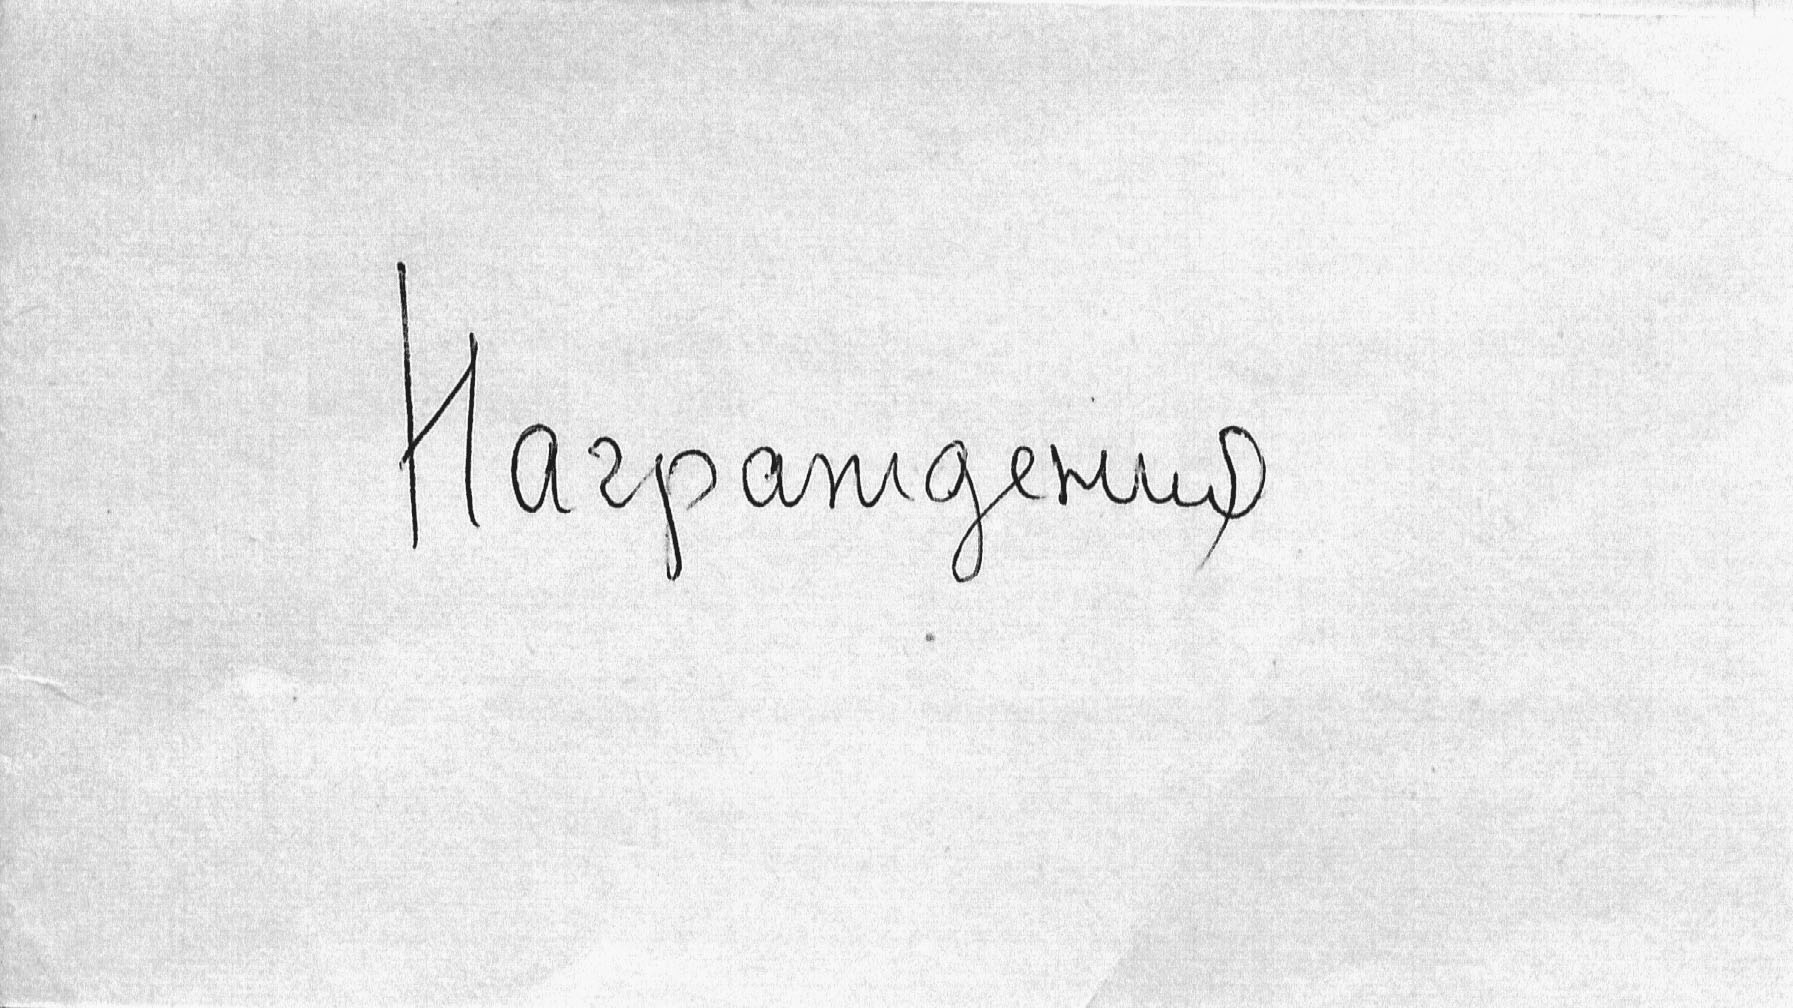 Награждения